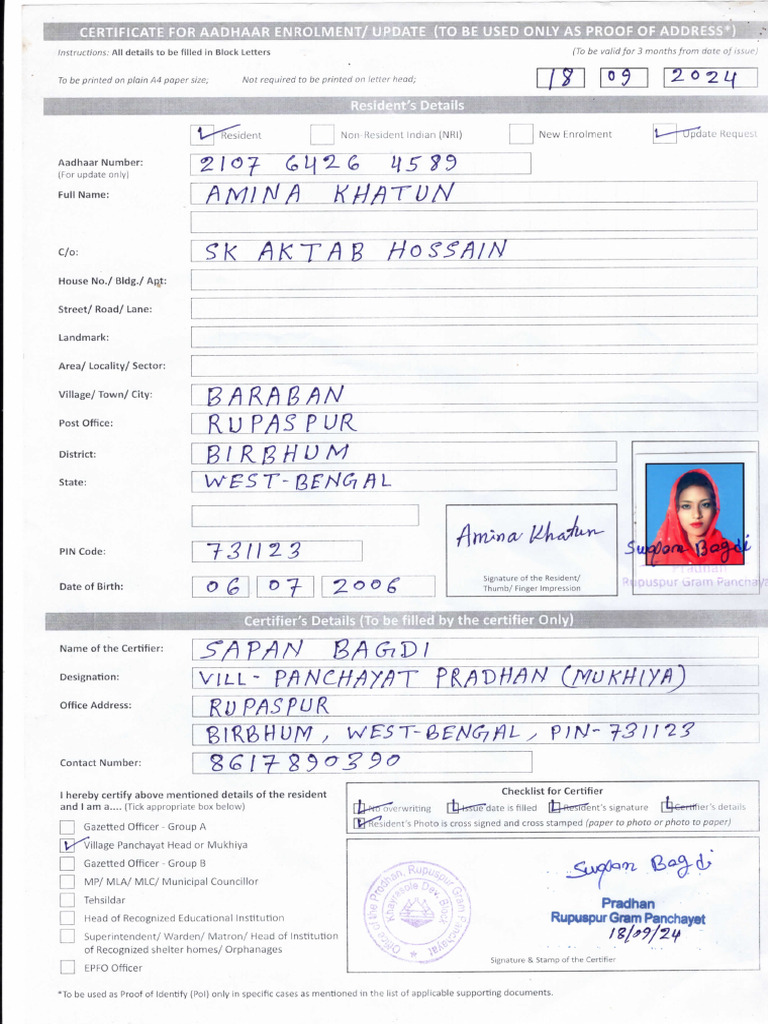 CERTIFICATE FOR AADHAAR ENROLMENT/ UPDATE (TO BE USED ONLY AS PROOF OF ADDRESS*)
Instructions: All details to be filled in Block Letters (To be valid for 3 months from date of issue)
To be printed on plain A4 paper size; Not required to be printed on letter head; 18 09 2024
Resident's Details
Resident Non-Resident Indian (NRI) New Enrolment Update Request
Aadhaar Number: 2107 6426 4589
(For update only)
Full Name: AMINA KHATUN
C/o: SK AKTAB HOSSAIN
House No./ Bldg./ Apt:
Street/ Road/ Lane:
Landmark:
Area/ Locality/ Sector:
Village/ Town/ City: BARABAN
Post Office: RUPASPUR
District: BIRBHUM
State: WEST-BENGAL
Amina Khatun
PIN Code: 731123
Bagdi
Pradhan
Rupuspur Gram Panchaye
Signature of the Resident/
Thumb/ Finger Impression
Date of Birth: 06 07 2006
Certifier's Details (To be filled by the certifier Only)
Name of the Certifier: SAPAN BAGDI
Designation: VILL- PANCHAYAT PRADHAN (MUKHIYA)
Office Address: RUPASPUR
BIRBHUM, WEST-BENGAL, PIN-731123
Contact Number: 8617890390
I hereby certify above mentioned details of the resident
and I am a.... (Tick appropriate box below)
Gazetted Officer - Group A
Village Panchayat Head or Mukhiya
Gazetted Officer - Group B
MP/ MLA/ MLC/ Municipal Councillor
Tehsildar
Head of Recognized Educational Institution
Superintendent/ Warden/ Matron/ Head of Institution
of Recognized shelter homes/ Orphanages
EPFO Officer
Checklist for Certifier
No overwriting Issue date is filled Resident's signature Certifier's details
Resident's Photo is cross signed and cross stamped (paper to photo or photo to paper)
Office of the Pradhan, Rupuspur Gram Panchayat
Khayrasole Dev. Block
Bagdi
Pradhan
Rupuspur Gram Panchayet
18/09/24
Signature & Stamp of the Certifier
*To be used as Proof of Identify (PoI) only in specific cases as mentioned in the list of applicable supporting documents.